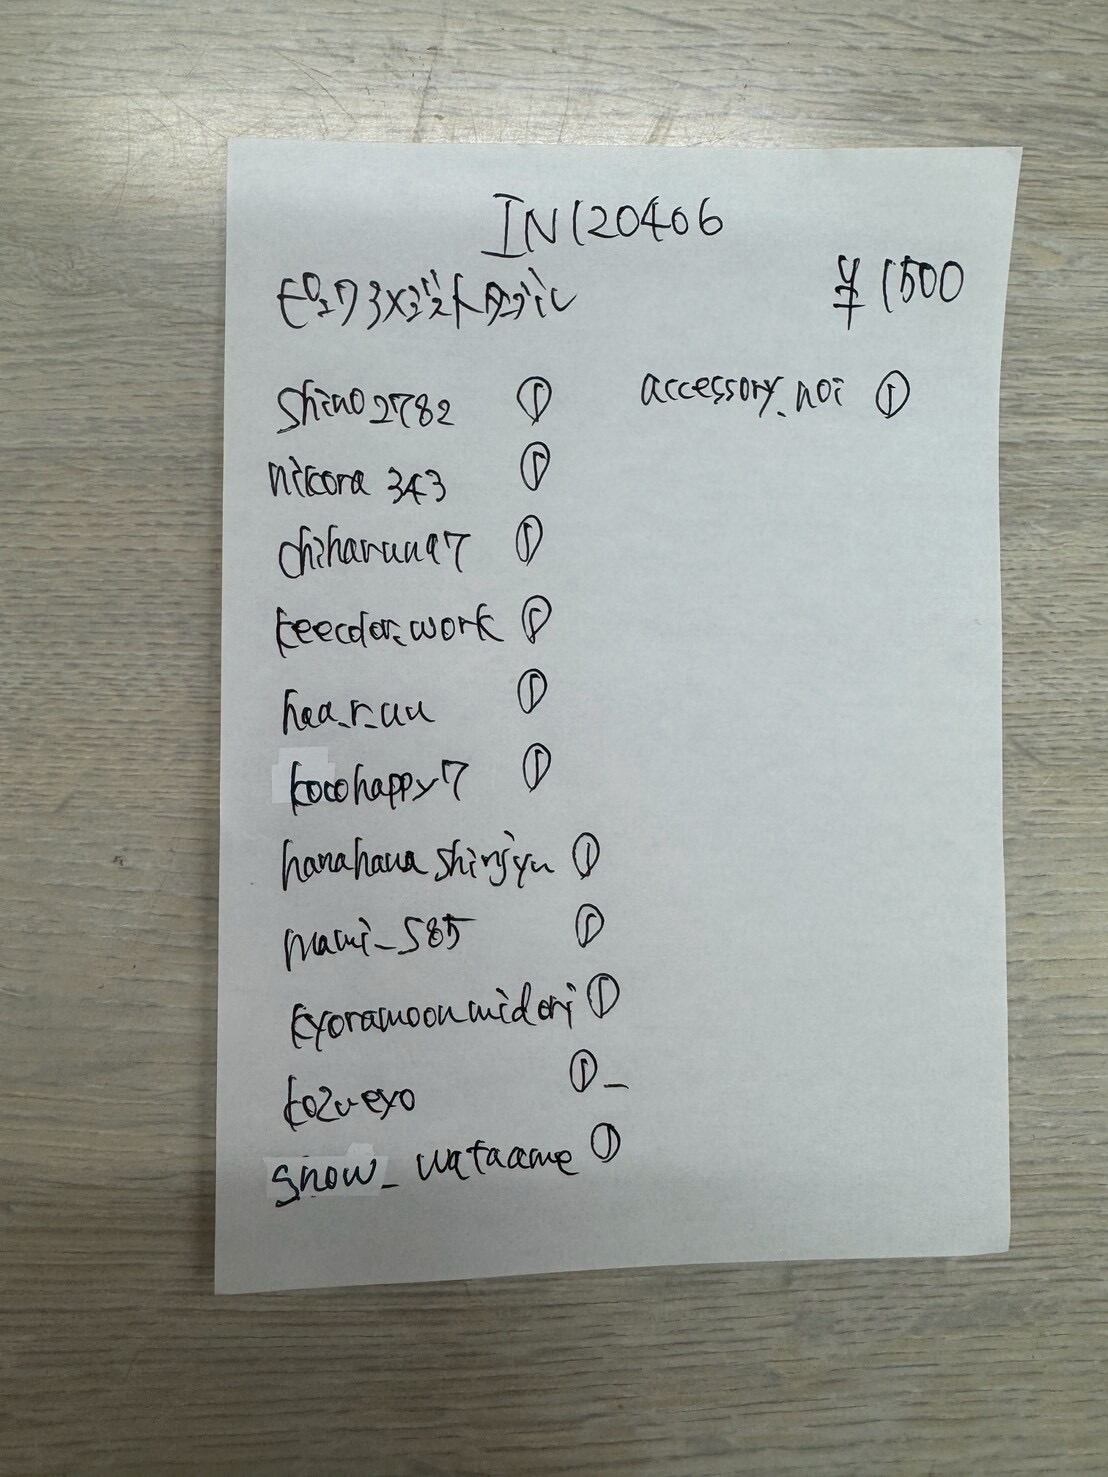 IN120406
¥1500
shino2782 ①
nikora343 ①
chiharuua97 ①
keecolor_work ①
haa_r_uu ①
kocohappy7 ①
hanahana shinjyu ①
mami_585 ①
kyoramoonmidori ①
kozueyo ①_
snow_wataame ①
accessory_noi ①